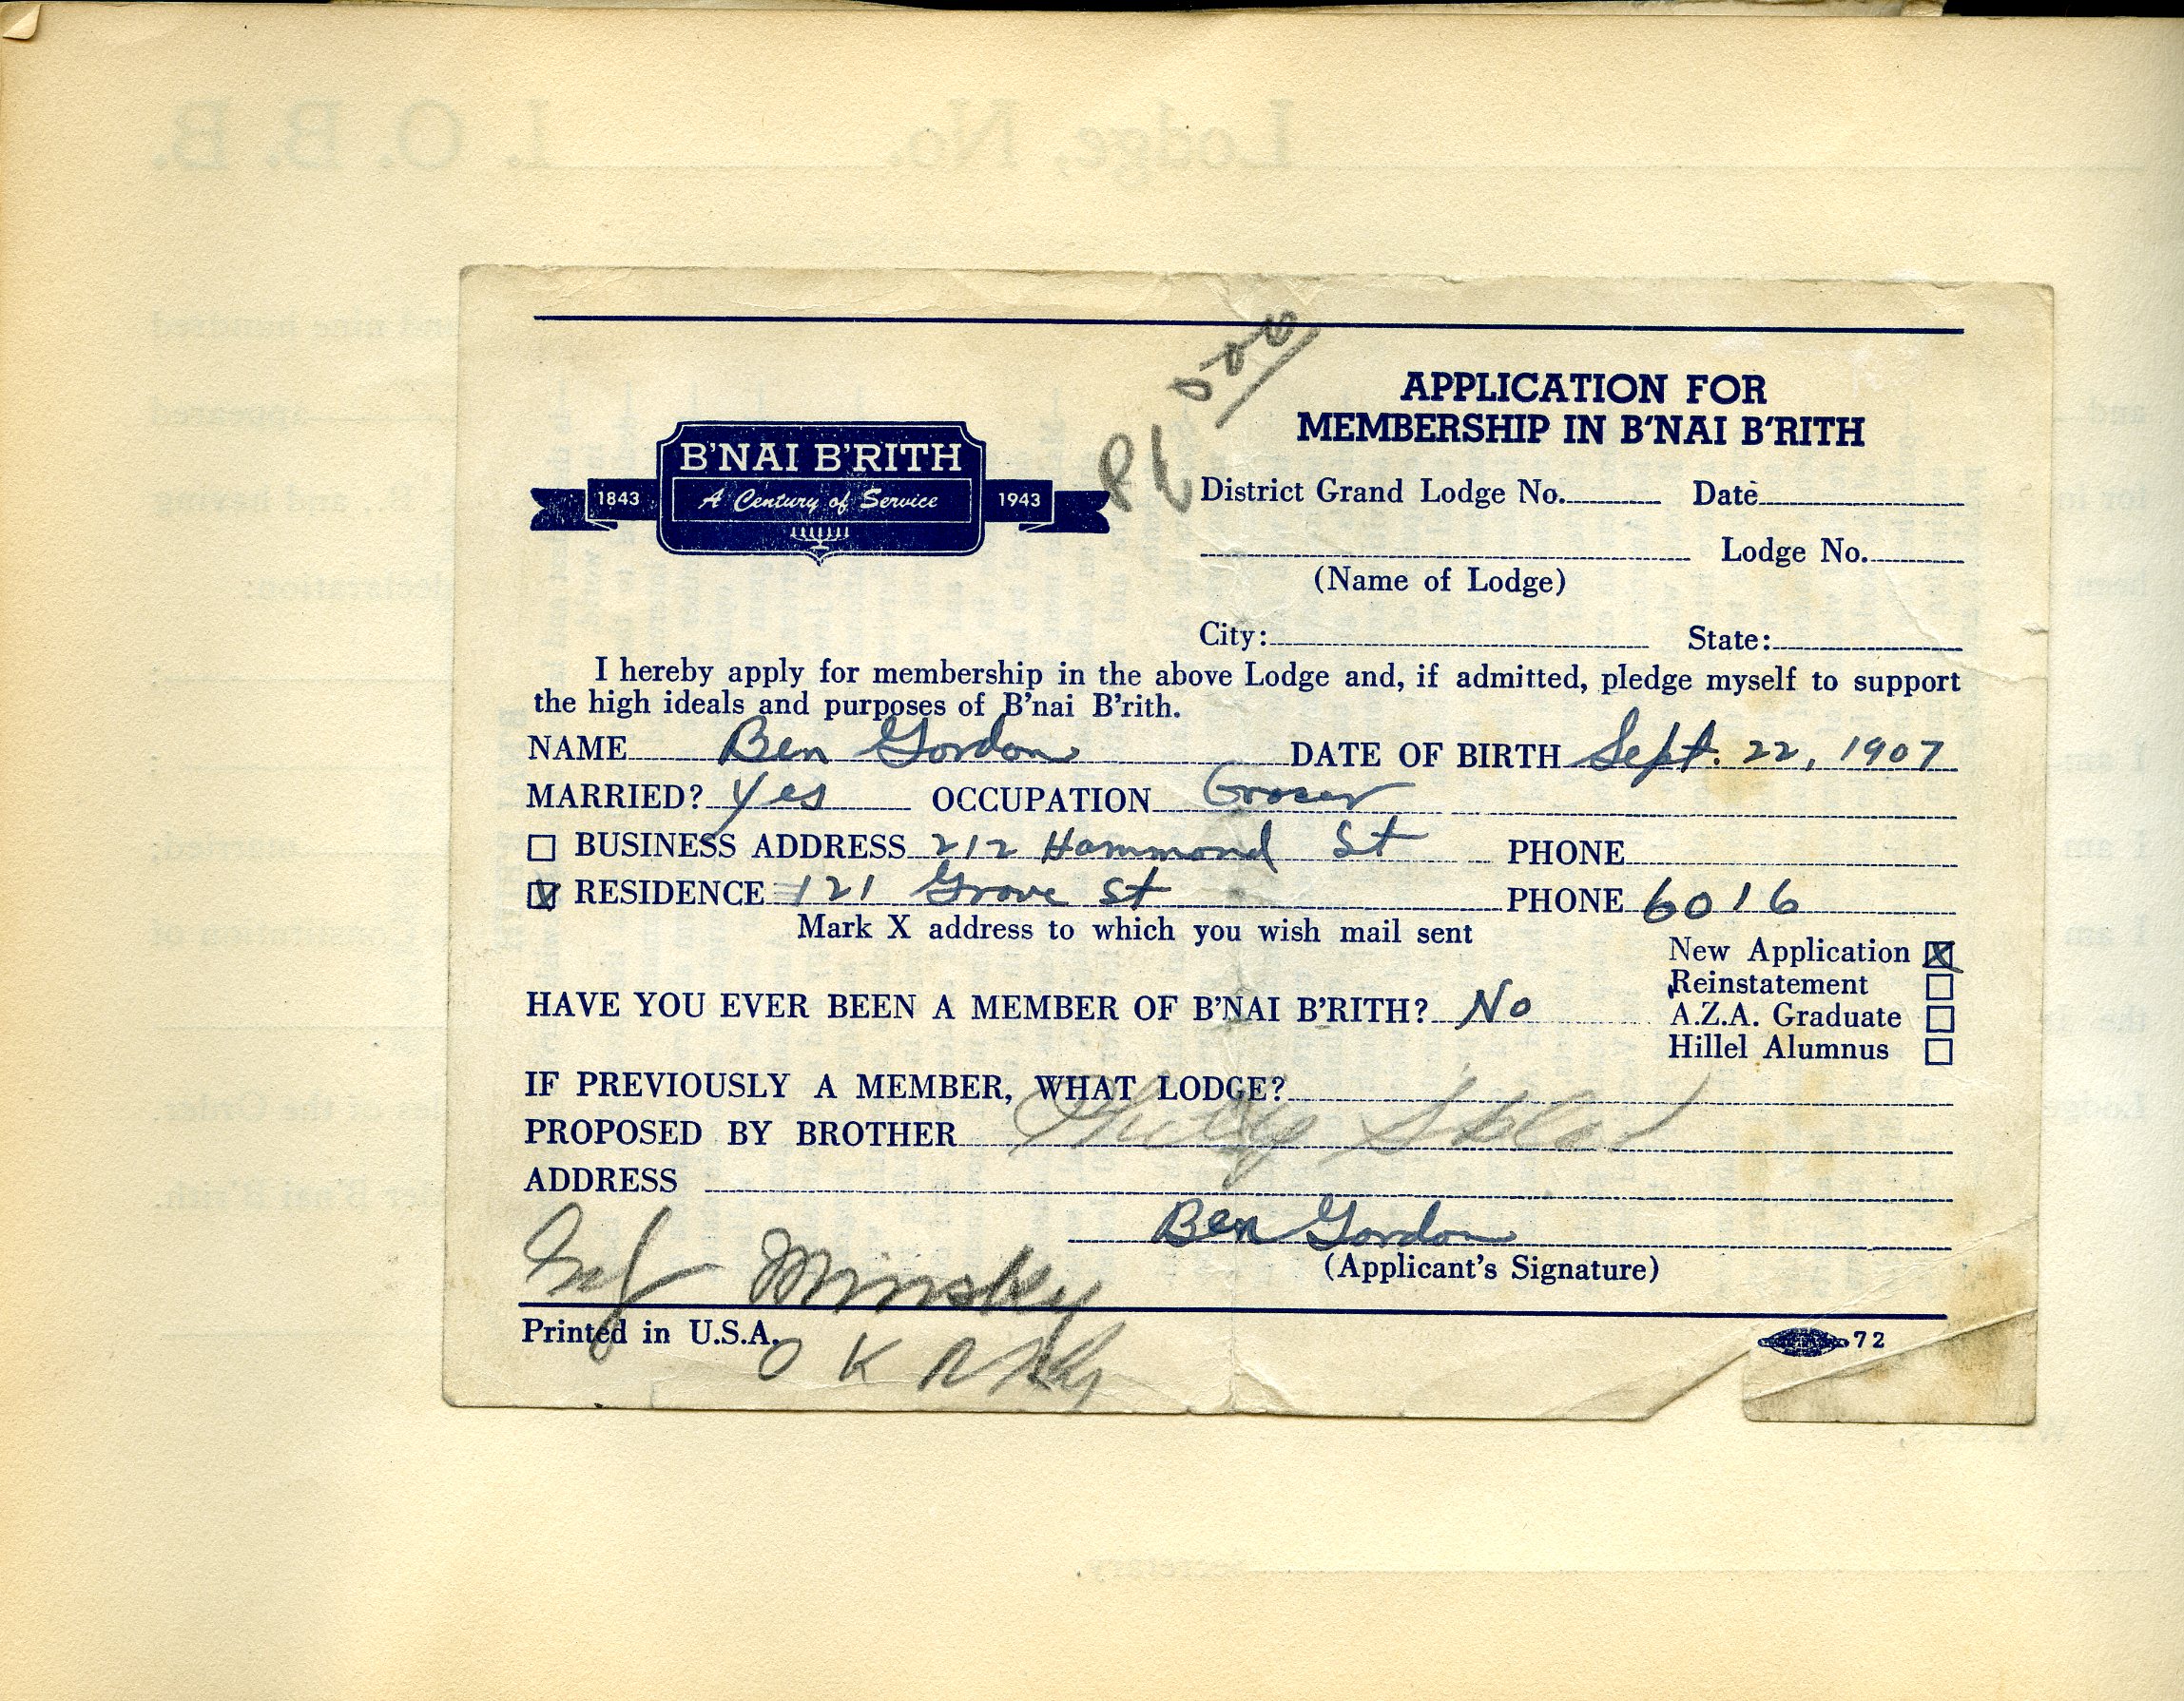 Pd 500
APPLICATION FOR
MEMBERSHIP IN B'NAI B'RITH
B'NAI B'RITH
1843 A Century of Service 1943
District Grand Lodge No. Date
Lodge No.
(Name of Lodge)
City: State:
I hereby apply for membership in the above Lodge and, if admitted, pledge myself to support
the high ideals and purposes of B'nai B'rith.
NAME Ben Gordon DATE OF BIRTH Sept. 22, 1907
MARRIED? Yes OCCUPATION Grocer
BUSINESS ADDRESS 212 Hammond St PHONE
X RESIDENCE 121 Grove St PHONE 6016
Mark X address to which you wish mail sent
New Application X
Reinstatement
HAVE YOU EVER BEEN A MEMBER OF B'NAI B'RITH? No
A.Z.A. Graduate
Hillel Alumnus
IF PREVIOUSLY A MEMBER, WHAT LODGE?
PROPOSED BY BROTHER Sklar
ADDRESS
Ben Gordon
(Applicant's Signature)
Minsky
Printed in U.S.A.
72
O K